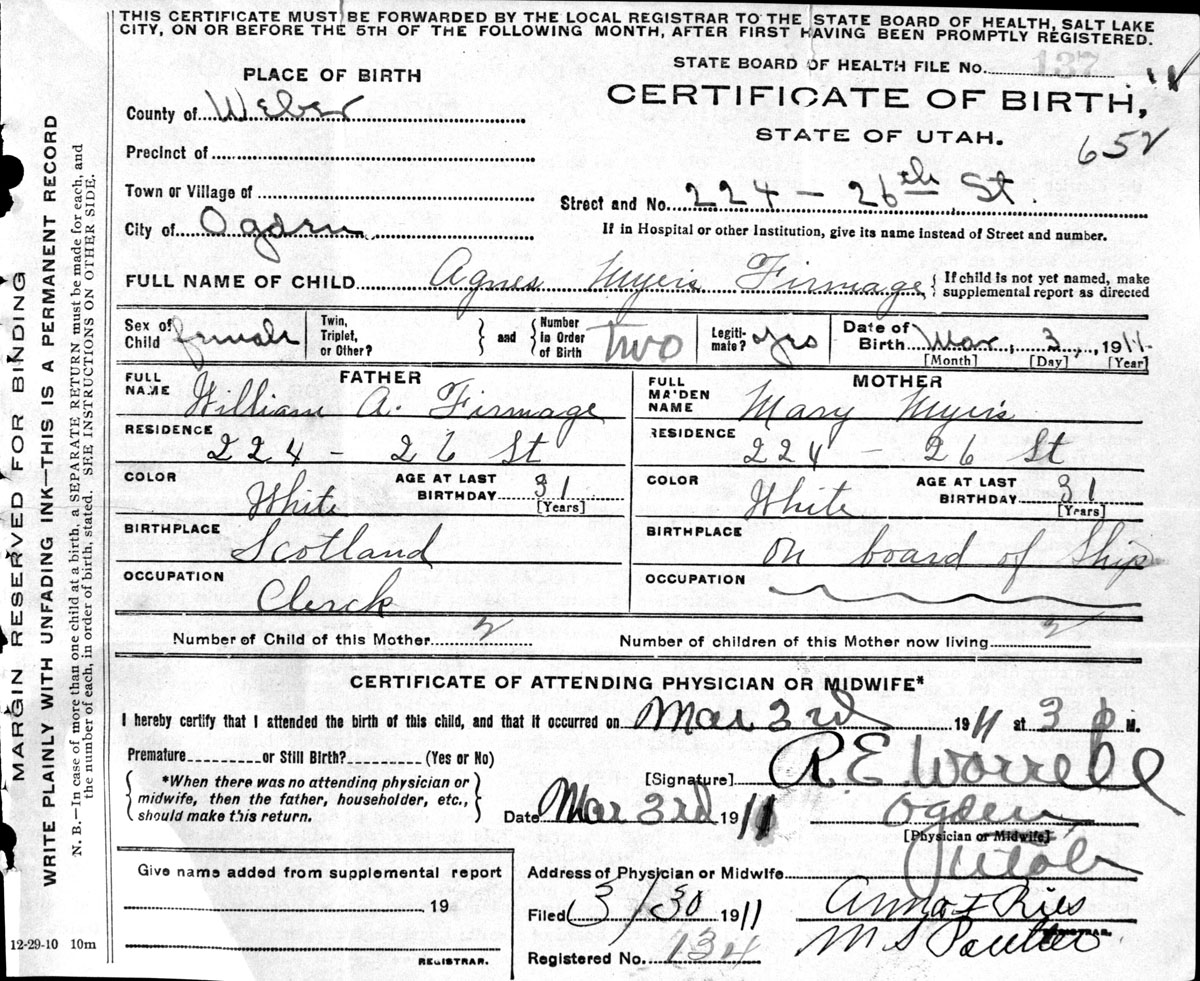 THIS CERTIFICATE MUST BE FORWARDED BY THE LOCAL REGISTRAR TO THE STATE BOARD OF HEALTH, SALT LAKE
CITY, ON OR BEFORE THE 5TH OF THE FOLLOWING MONTH, AFTER FIRST HAVING BEEN PROMPTLY REGISTERED.
STATE BOARD OF HEALTH FILE No. 137
PLACE OF BIRTH
CERTIFICATE OF BIRTH,
County of Weber
STATE OF UTAH.
652
Precinct of
Town or Village of
Street and No. 224 - 26th St.
City of Ogden
If in Hospital or other Institution, give its name instead of Street and number.
FULL NAME OF CHILD Agnes Myers Firmage { If child is not yet named, make
supplemental report as directed
Sex of Child female Twin, Triplet, or Other? } and { Number in Order of Birth two Legiti- mate? yes Date of Birth Mar, 3, 1911
[Month] [Day] [Year]
FATHER
FULL NAME William A. Firmage
RESIDENCE 224 - 26 St
COLOR White AGE AT LAST BIRTHDAY 31 [Years]
BIRTHPLACE Scotland
OCCUPATION Clerck
MOTHER
FULL MAIDEN NAME Mary Myers
RESIDENCE 224 - 26 St
COLOR White AGE AT LAST BIRTHDAY 31 [Years]
BIRTHPLACE on board of Ship
OCCUPATION
Number of Child of this Mother 2 Number of children of this Mother now living 2
CERTIFICATE OF ATTENDING PHYSICIAN OR MIDWIFE*
I hereby certify that I attended the birth of this child, and that it occurred on Mar 3rd 1911 at 3 p M.
Premature or Still Birth? (Yes or No)
{ *When there was no attending physician or
midwife, then the father, householder, etc.,
should make this return. }
[Signature] R.E Worrell
Date Mar 3rd 1911 Ogden
[Physician or Midwife]
Utah
Address of Physician or Midwife
Give name added from supplemental report
19
REGISTRAR.
Filed 3/30 1911 Anna F Ries
M S
REGISTRAR.
Registered No. 134
12-29-10 10m
MARGIN RESERVED FOR BINDING
WRITE PLAINLY WITH UNFADING INK—THIS IS A PERMANENT RECORD
N. B.—In case of more than one child at a birth, a SEPARATE RETURN must be made for each, and
the number of each, in order of birth, stated. SEE INSTRUCTIONS ON OTHER SIDE.